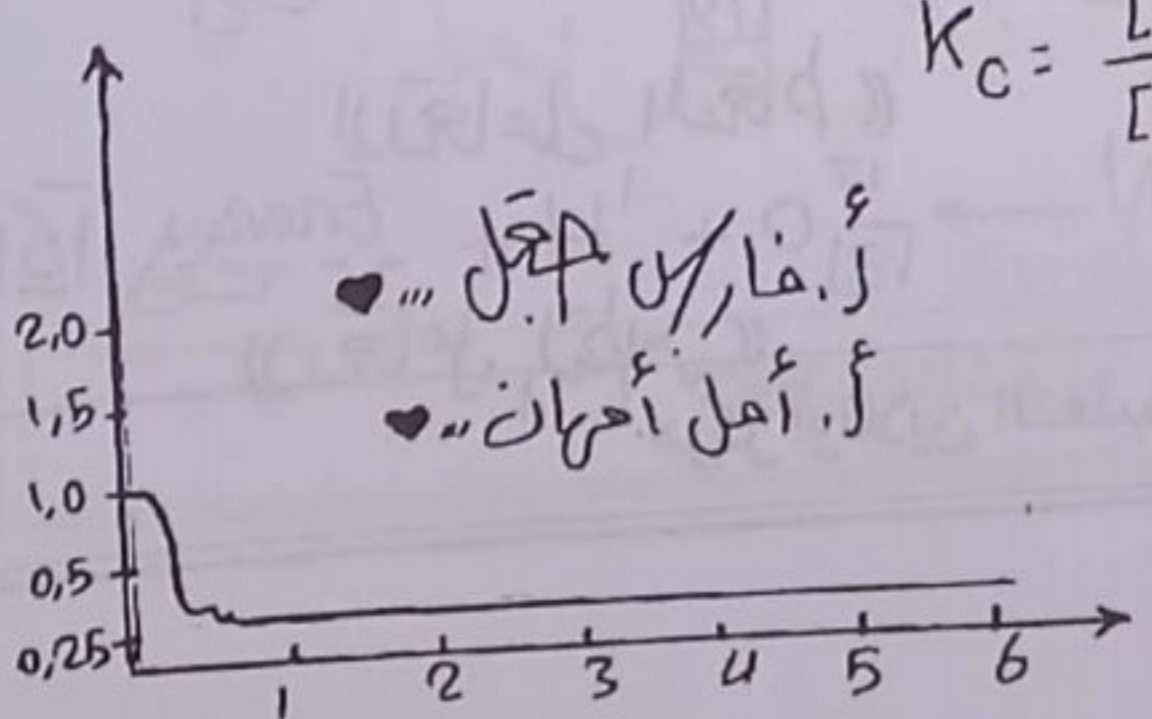 Kc = [
[
أ. فارس جقل ... ♥
أ. أمل أمهان ... ♥
2,0
1,5
1,0
0,5
0,25
1 2 3 4 5 6